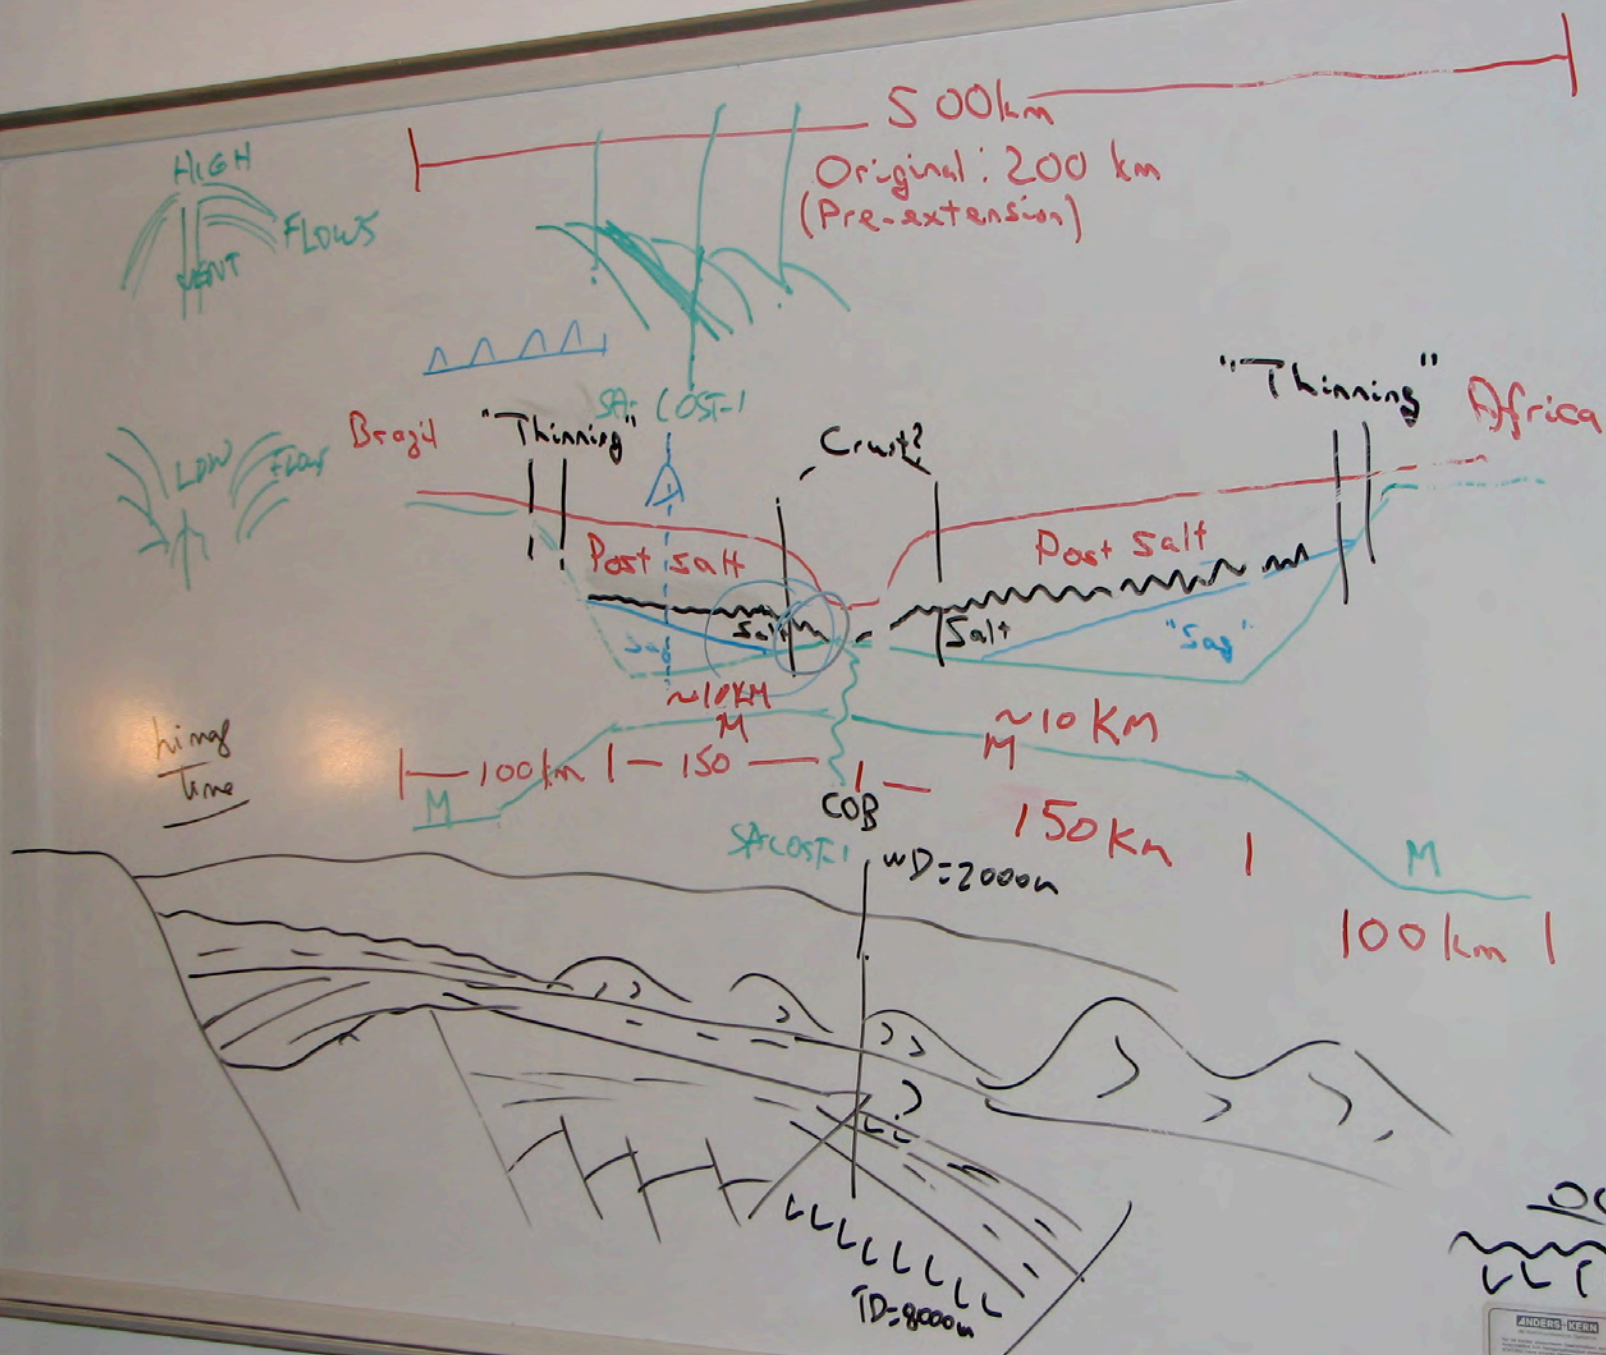 500km
Original: 200 km
(Pre-extension)
HIGH
FLOWS
VENT
SA- COST-1
Brazil
"Thinning"
Crust?
"Thinning"
Africa
LOW
FLOW
Post salt
Post Salt
Salt
Salt
Sag
"Sag"
~10KM
M
~10 KM
M
hinge
line
100km
150
M
COB
150Km
M
100km
SA-COST-1
WD=2000m
TD=8000m
ANDERS+KERN